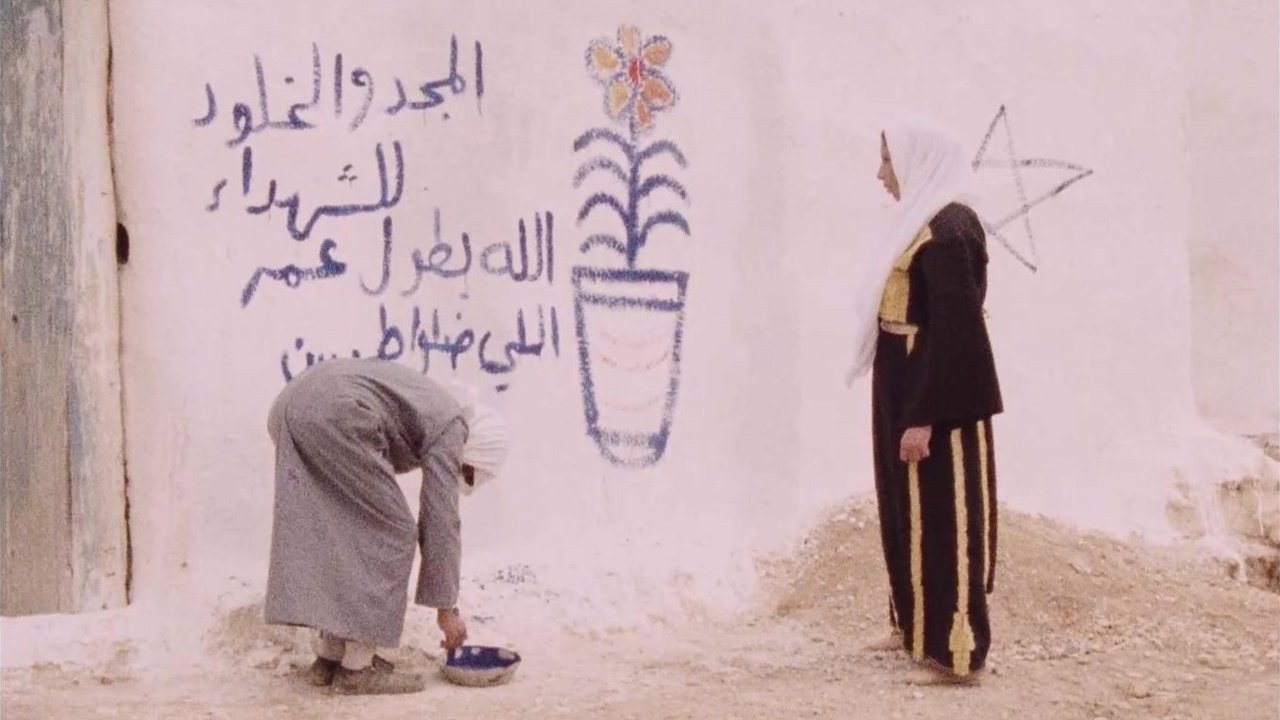 المجد والخلود
للشهداء
الله يطول عمر
اللي ضلوا طيبين